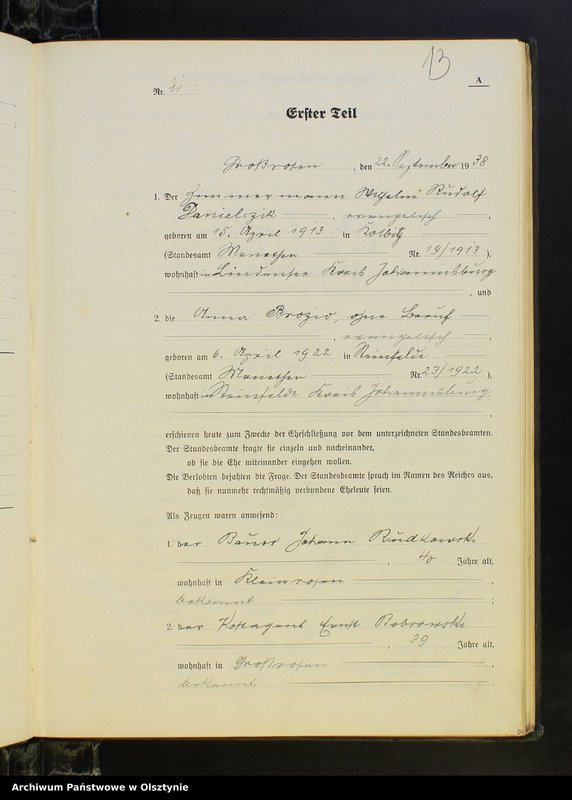 13
A
Nr. 11
Erster Teil
Großrosen, den 22. September 1938
1. Der Zimmermann Wilhelm Rudolf
Danielczik, evangelisch,
geboren am 15. April 1913 in Kolbitz
(Standesamt Monethen Nr. 19/1913),
wohnhaft in Lindensee Kreis Johannisburg
, und
2. die Anna Brozio, ohne Beruf
, evangelisch,
geboren am 6. April 1922 in Steinfelde
(Standesamt Monethen Nr. 23/1922),
wohnhaft in Steinfelde Kreis Johannisburg
,
erschienen heute zum Zwecke der Eheschließung vor dem unterzeichneten Standesbeamten.
Der Standesbeamte fragte sie einzeln und nacheinander,
ob sie die Ehe miteinander eingehen wollen.
Die Verlobten bejahten die Frage. Der Standesbeamte sprach im Namen des Reiches aus,
daß sie nunmehr rechtmäßig verbundene Eheleute seien.
Als Zeugen waren anwesend:
1. der Bauer Johann Rudkowski
, 40 Jahre alt,
wohnhaft in Kleinrosen,
bekannt;
2. der Postagent Ernst Bobrowski
, 39 Jahre alt,
wohnhaft in Großrosen,
bekannt.
Archiwum Państwowe w Olsztynie